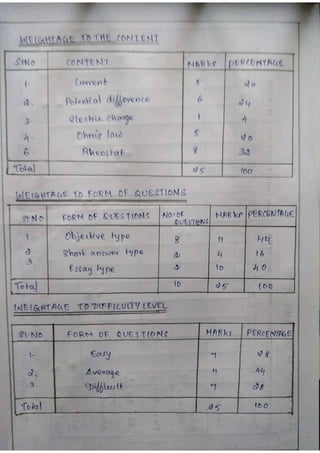 WEIGHTAGE TO THE CONTENT
Sl NO CONTENT MARKS PERCENTAGE
1. Current 5 20
2. Potential difference 6 24
3. Electric charge 1 4
4. Ohm's law 5 20
5. Rheostat 8 32
Total 25 100
WEIGHTAGE TO FORM OF QUESTIONS
Sl.NO FORM OF QUESTIONS NO.OF QUESTIONS MARKS PERCENTAGE
1 Objective type 8 11 44
2 Short answer type 2 4 16
3 Essay type 2 10 40
Total 10 25 100
WEIGHTAGE TO DIFFICULTY LEVEL
Sl.NO FORM OF QUESTIONS MARKS PERCENTAGE
1. Easy 7 28
2. Average 11 44
3. Difficult 7 28
Total 25 100